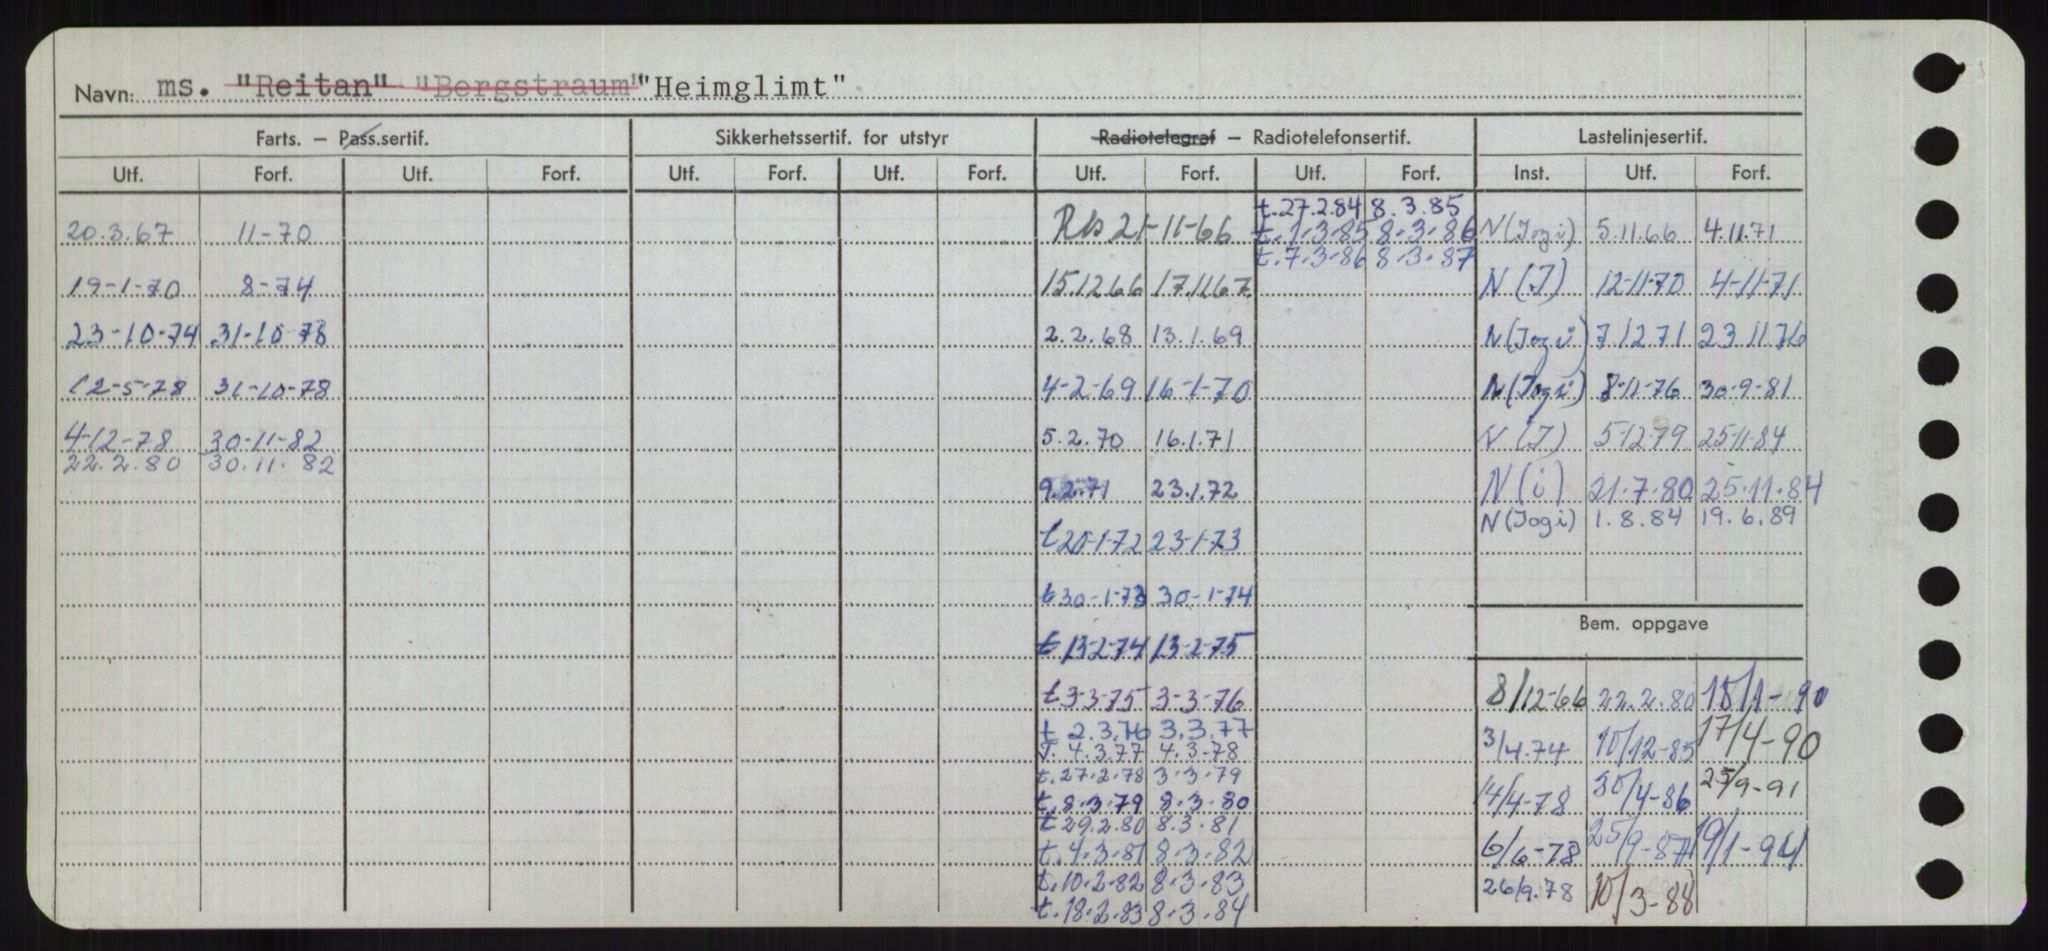 Navn: ms. "Reitan" "Bergstraum" "Heimglimt"
Farts. – Pass.sertif. Sikkerhetssertif. for utstyr Radiotelegraf – Radiotelefonsertif. Lastelinjesertif.
Utf. Forf. Utf. Forf. Utf. Forf. Utf. Forf. Utf. Forf. Utf. Forf. Inst. Utf. Forf.
t.27.2.84 8.3.85
20.3.67 11-70 21-11-66 t.1.3.85 8.3.86 N(Jogi) 5.11.66 4.11.71
t.7.3.86 8.3.87
19-1-70 8-74 15.12.66 17.11.67 N(J) 12-11-70 4-11-71
23-10-74 31-10-78 2.2.68 13.1.69 N(Jogi) 7.12.71 23.11.76
12-5-78 31-10-78 4-2-69 16-1-70 N(Jogi) 8-11-76 30-9-81
4-12-78 30-11-82 5.2.70 16.1.71 N(J) 5.12.79 25.11.84
22.2.80 30.11.82
9.2.71 23.1.72 N(i) 21.7.80 25.11.84
N(Jogi) 1.8.84 19.6.89
t 20-1-72 23-1-73
t 30-1-73 30-1-74
Bem. oppgave
t 13-2-74 13-2-75
t 3-3-75 3-3-76 8/12-66 22.2.80 15/1-90
t 2.3.76 3.3.77
T. 4.3.77 4.3.78 3/4.74 10/12-85 17/4-90
t.27.2.78 3.3.79
t.8.3.79 8.3.80 14/4-78 30/4-86 25/9-91
t 29.2.80 8.3.81
t.4.3.81 8.3.82 6/6-78 25/9-87 19/1-94
t.10.2.82 8.3.83 26/9.78 10/3-88
t.18.2.83 8.3.84